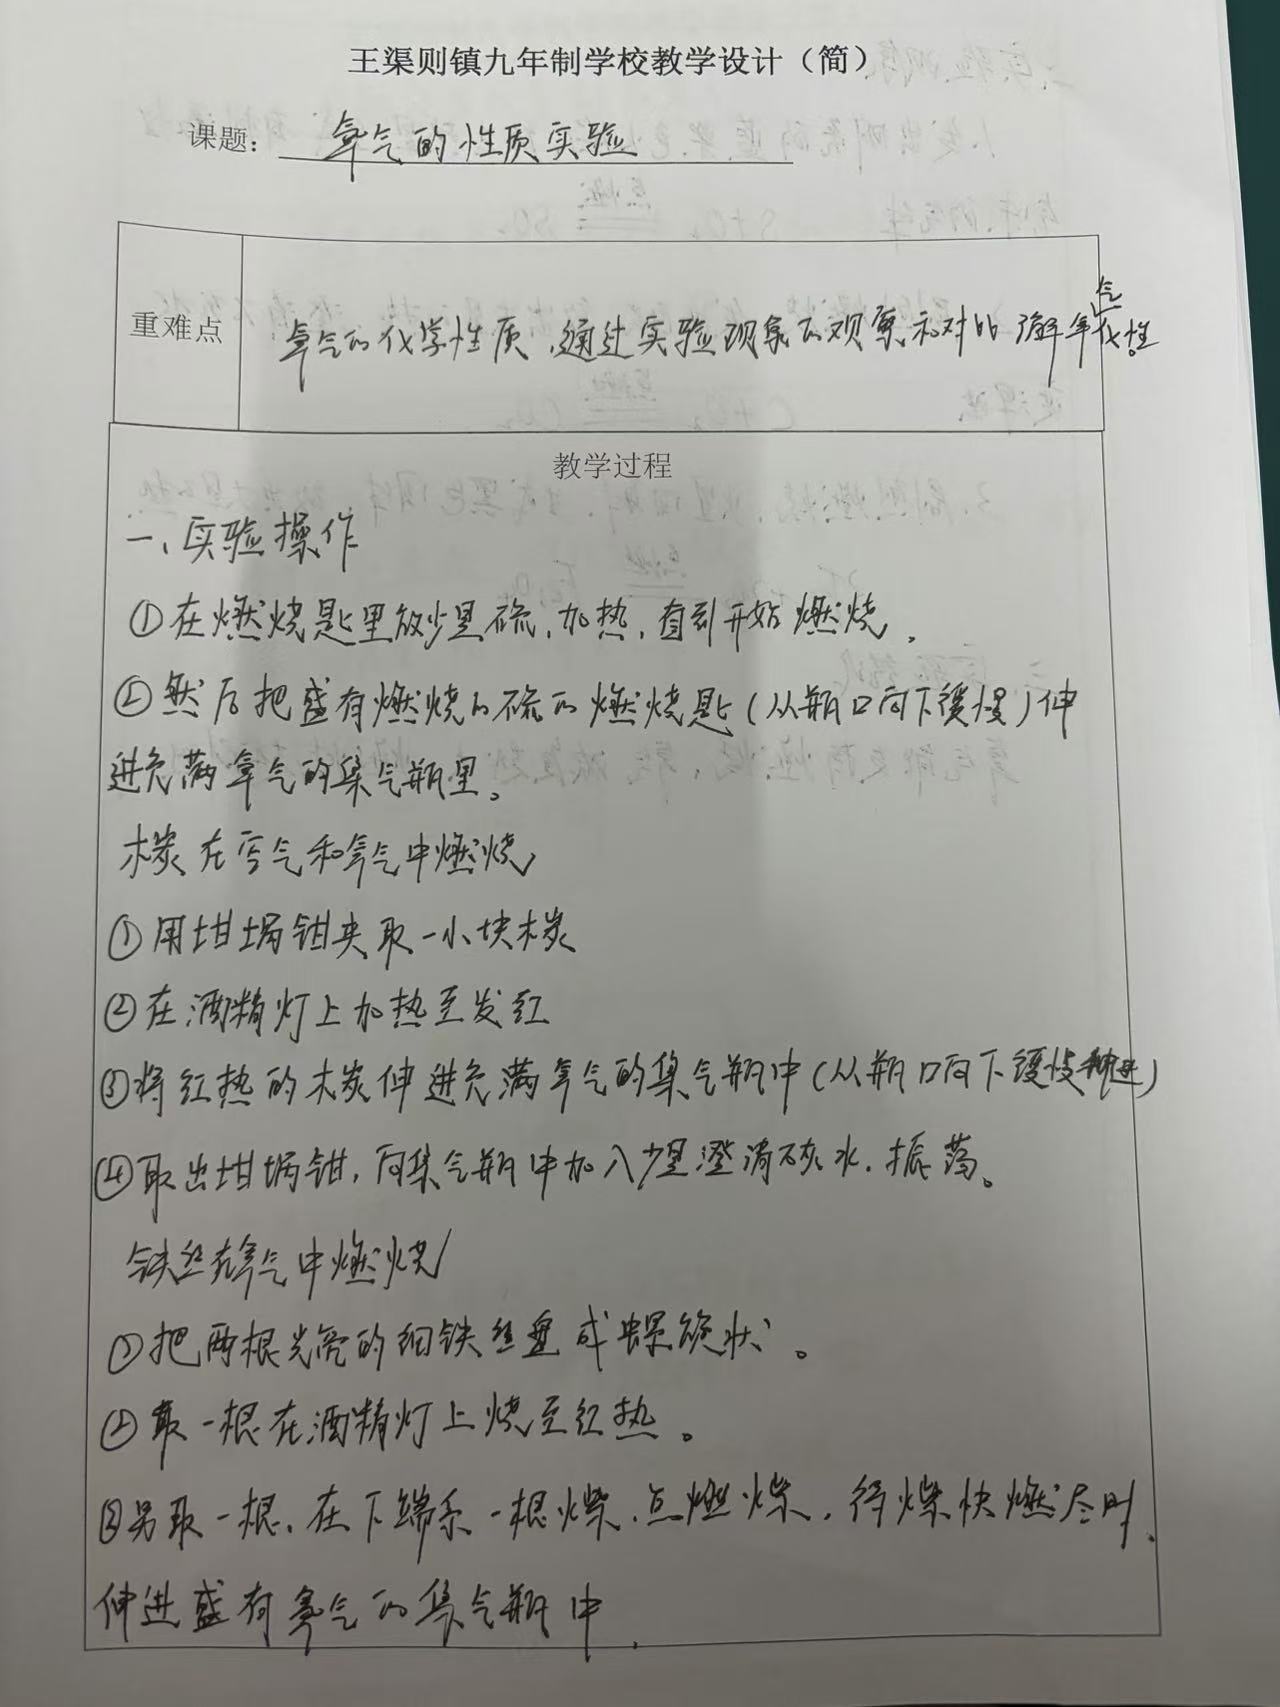 王渠则镇九年制学校教学设计（简）
课题： 氧气的性质实验
重难点
氧气的化学性质，通过实验现象的观察和对的理解氧气化性。
教学过程
一、实验操作
①在燃烧匙里放少量硫，加热，直到开始燃烧，
②然后把盛有燃烧的硫的燃烧匙（从瓶口向下缓慢）伸
进充满氧气的集气瓶里。
木炭在空气和氧气中燃烧
①用坩埚钳夹取一小块木炭
②在酒精灯上加热至发红
③将红热的木炭伸进充满氧气的集气瓶中（从瓶口向下缓慢伸进）
④取出坩埚钳，向集气瓶中加入少量澄清石灰水，振荡。
铁丝在氧气中燃烧
①把两根光亮的细铁丝盘成螺旋状。
②取一根在酒精灯上烧至红热。
③另取一根，在下端系一根火柴，点燃火柴，待火柴快燃尽时，
伸进盛有氧气的集气瓶中，